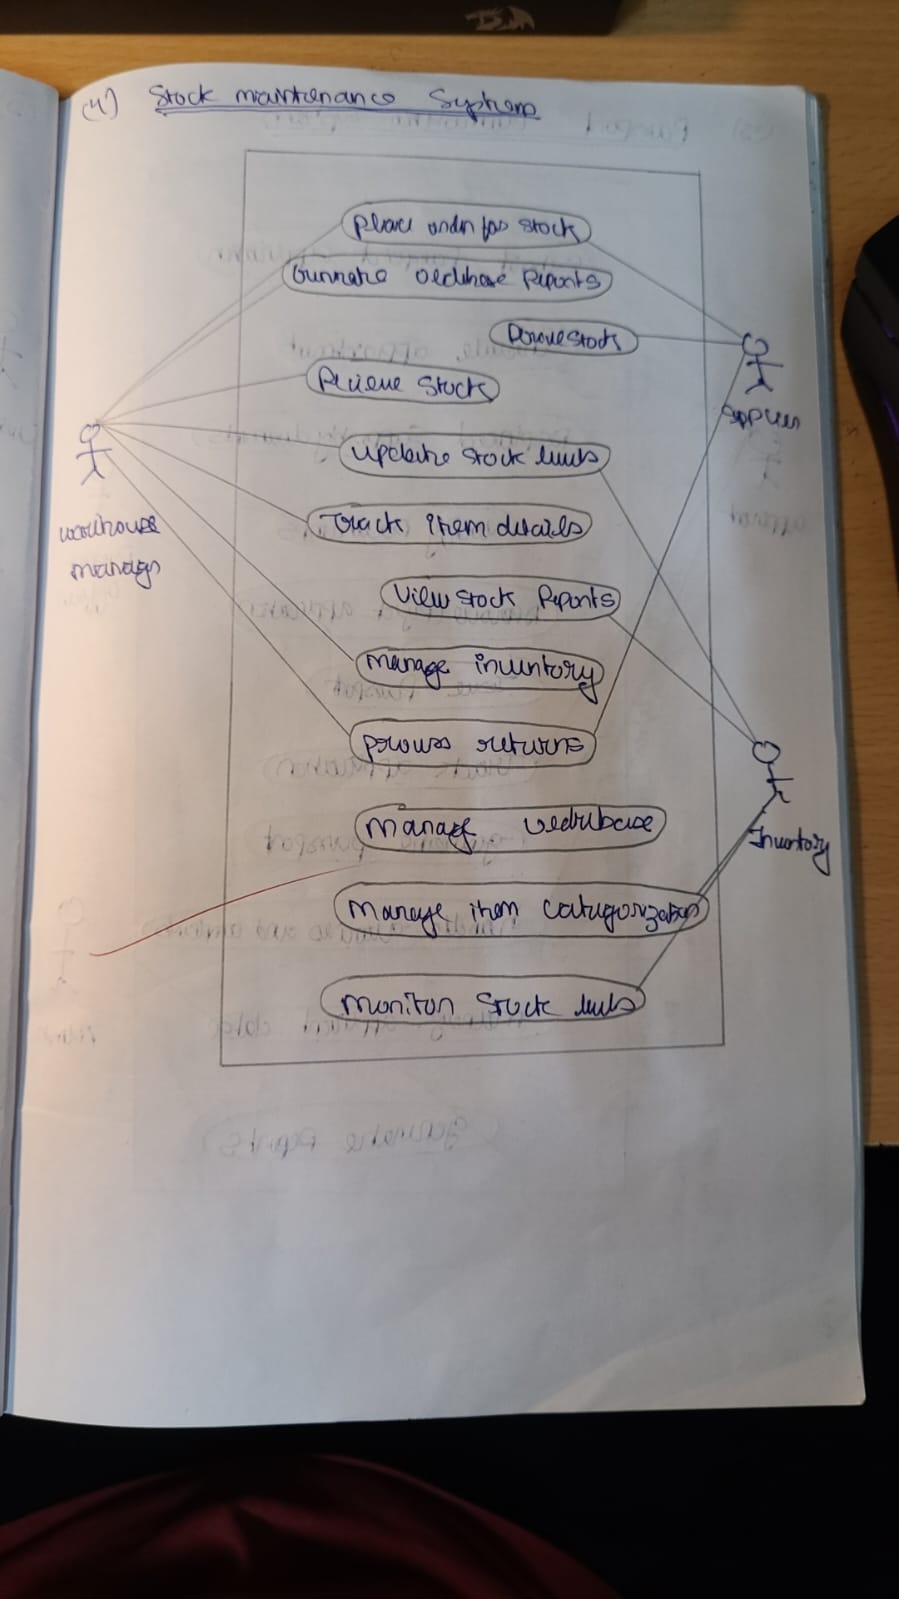 (4) Stock maintenance System
Place order for stock
Reports
stock
Recieve Stock
update stock levels
Track item details
View stock Reports
manage inventory
process returns
manage
manage item categorization
monitor stock levels
warehouse
manager
supplier
Inventory